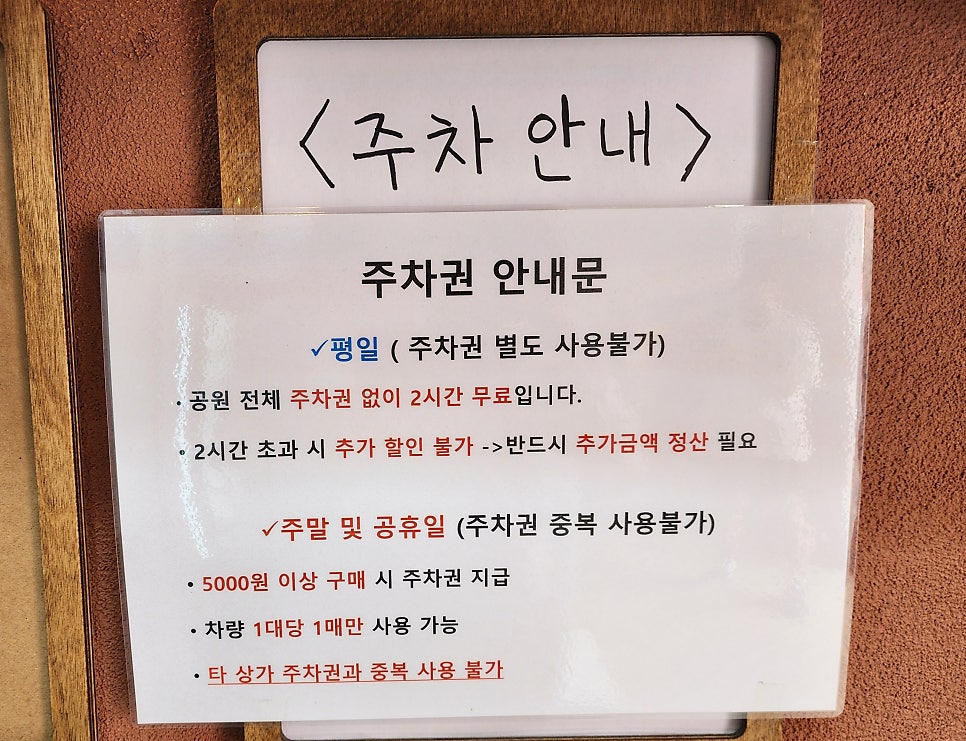 <주차 안내>
주차권 안내문
✓평일 ( 주차권 별도 사용불가)
· 공원 전체 주차권 없이 2시간 무료입니다.
· 2시간 초과 시 추가 할인 불가 ->반드시 추가금액 정산 필요
✓주말 및 공휴일 (주차권 중복 사용불가)
· 5000원 이상 구매 시 주차권 지급
· 차량 1대당 1매만 사용 가능
· 타 상가 주차권과 중복 사용 불가